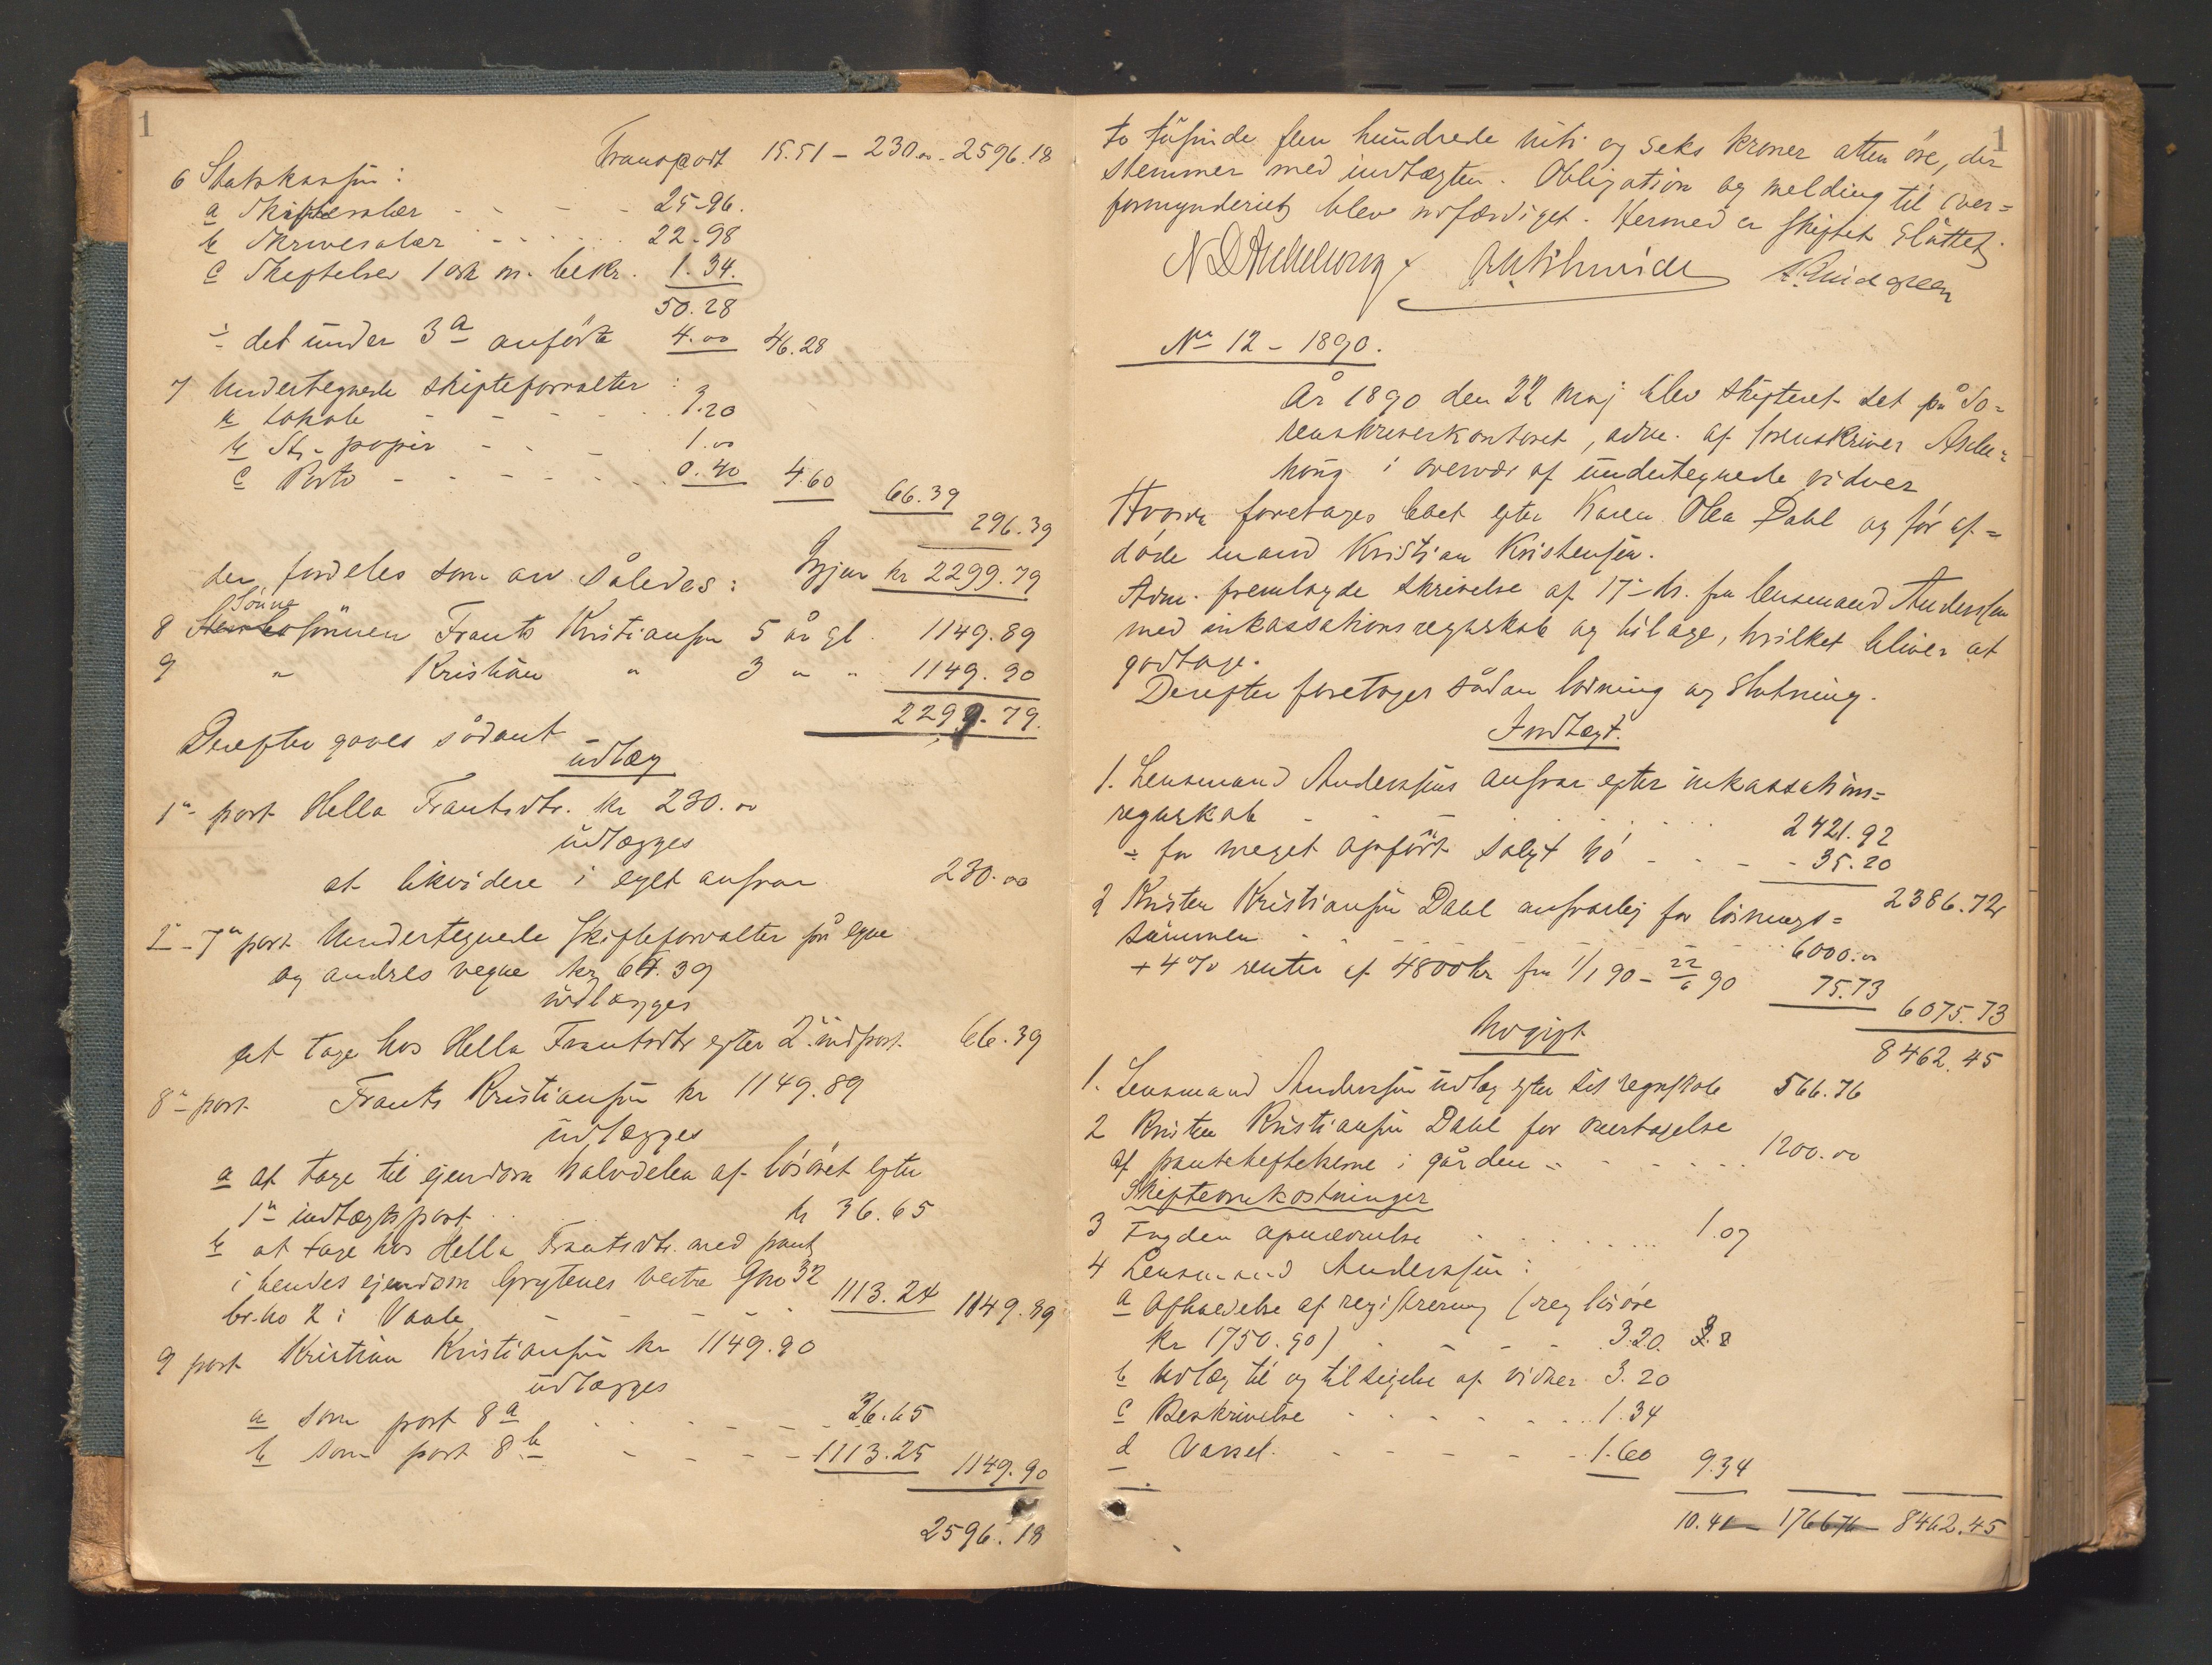 1
Transport 15.51 – 230.00 – 2596.18
6 Statskassen:
a Skiftesalær - - - - 25.96.
b Skrivesalær - - - - 22.98
c Skiftelser 1 ark m. bekr. 1.34.
50.28
÷ det under 3a anførte 4.00 46.28
7 Undertegnede skifteforvalter:
a Lokale - - - - 3.20
b St. papir - - - 1.00
c Porto - - - - 0.40 4.60 66.39
296.39
Igjen kr 2299.79
der fordeles som arv således:
Sønne
8 sønnen Frants Kristiansen 5 år gl. 1149.89
9 " Kristian " 3 " " 1149.90
2299.79.
Derefter gaves sådant
udlæg
1ste post Hella Frantsdtr. kr 230.00
udlægges
at likvidere i eget ansvar 230.00
2-7de post Undertegnede skifteforvalter på egne
og andres vegne kr 66.39
udlægges
at tage hos Hella Frantsdtr efter 2 indpost. 66.39
8de post Frants Kristiansen kr 1149.89
udlægges
a at tage til ejendom halvdelen af løsøret efter
1ste indtægtspost kr 36.65
b at tage hos Hella Frantsdtr. med pant
i hendes ejendom Grytenes vestre Gno 32
br.no 2 i Vaale 1113.24 1149.89
9 post Kristian Kristiansen kr 1149.90
udlægges
a som post 8a - - - - 36.65
b som post 8b - - - - 1113.25 1149.90
2596.18
1
to tusinde fem hundrede niti og seks kroner atten øre, der
stemmer med indtægten. Obligation og melding til over=
formynderiet blev udfærdiget. Hermed er skiftet sluttet.
No 12 – 1890.
År 1890 den 22 Maj blev skifteret set på So=
renskriverkontoret, adm. af sorenskriver Aschen=
houg i overvær af undertegnede vidner
Hvorda foretages boet efter Karen Olea Dahl og før af=
døde mand Kristian Kristensen.
Adm. fremlagde skrivelse af 17de ds. fra lensmand Anderssen
med inkassationsregnskab og bilage, hvilket bliver at
godtage.
Derefter foretages sådan lodning og slutning.
Indtægt.
1. Lensmand Anderssens ansvar efter inkassations=
regnskab - - - - 2421.92
÷ for meget opført solgt hø - - - - 35.20
2386.72
2 Kristen Kristiansen Dahl ansvarlig for løsnings=
summen - - - - 6000.00
+ 4% renter af 4800 kr fra 1/1 90 – 22/6 90 75.73 6075.73
8462.45
Udgift
1. Lensmand Anderssen udlæg efter sit regnskab 566.76
2 Kristen Kristiansen Dahl for overtagelse
af panteheftelserne i gården - - - - 1200.00
Skifteomkostninger
3 Fogden opnævnelse - - - - 1.07
4 Lensmand Anderssen:
a Afholdelse af registrering (reg løsøre
kr 1750.90) - - - - 3.20
b Udlæg til og tilsigelse af vidner 3.20
c Beskrivelse - - - - 1.34
d Varsel. - - - - 1.60 9.34
10.41 – 1766.76 – 8462.45